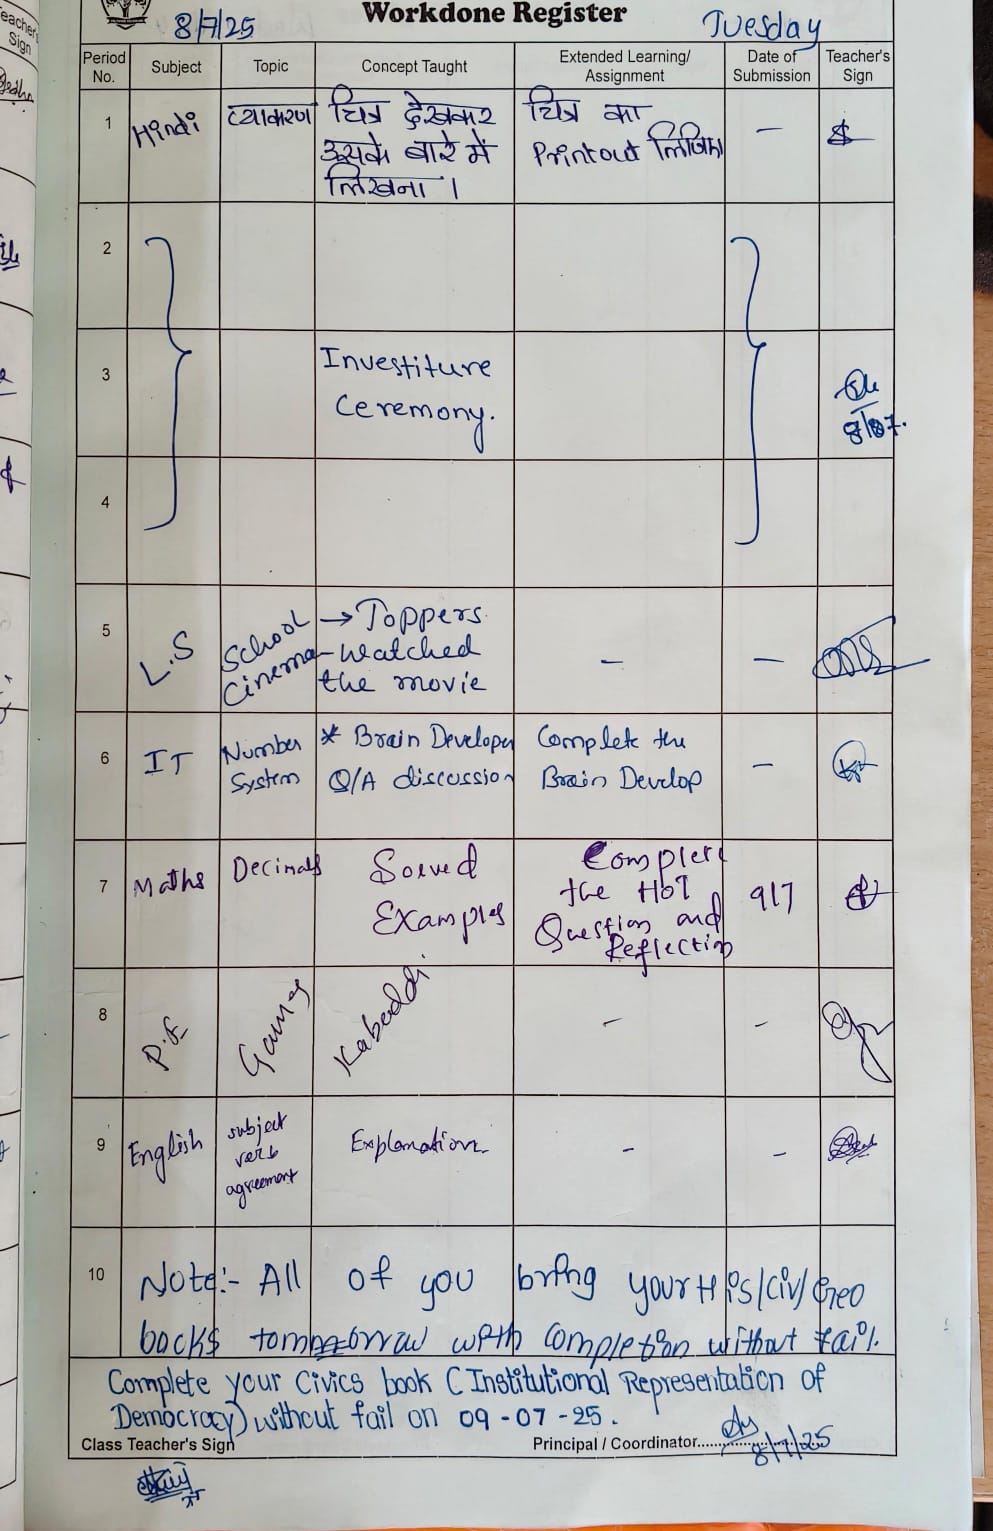 Workdone Register
8/7/25
Tuesday
Period No. Subject Topic Concept Taught Extended Learning/ Assignment Date of Submission Teacher's Sign
1 Hindi व्याकरण चित्र देखकर चित्र का –
उसके बारे में Printout
लिखना ।
2
3 Investiture
Ceremony.
8/07.
4
5 L.S School → Toppers – –
Cinema – Watched
the movie
6 IT Number * Brain Developer Complete the –
System Q/A discussion Brain Develop
7 Maths Decimals Solved Complete 9/7
Examples the HOT
Question and
Reflection
8 P.E Games Kabaddi – –
9 English subject Explanation. – –
verb
agreement
10 Note:- All of you bring your His/Civ/Geo
books tommorrow with completion without fail.
Complete your Civics book (Institutional Representation of
Democracy) without fail on 09-07-25.
Class Teacher's Sign Principal / Coordinator
8/7/25